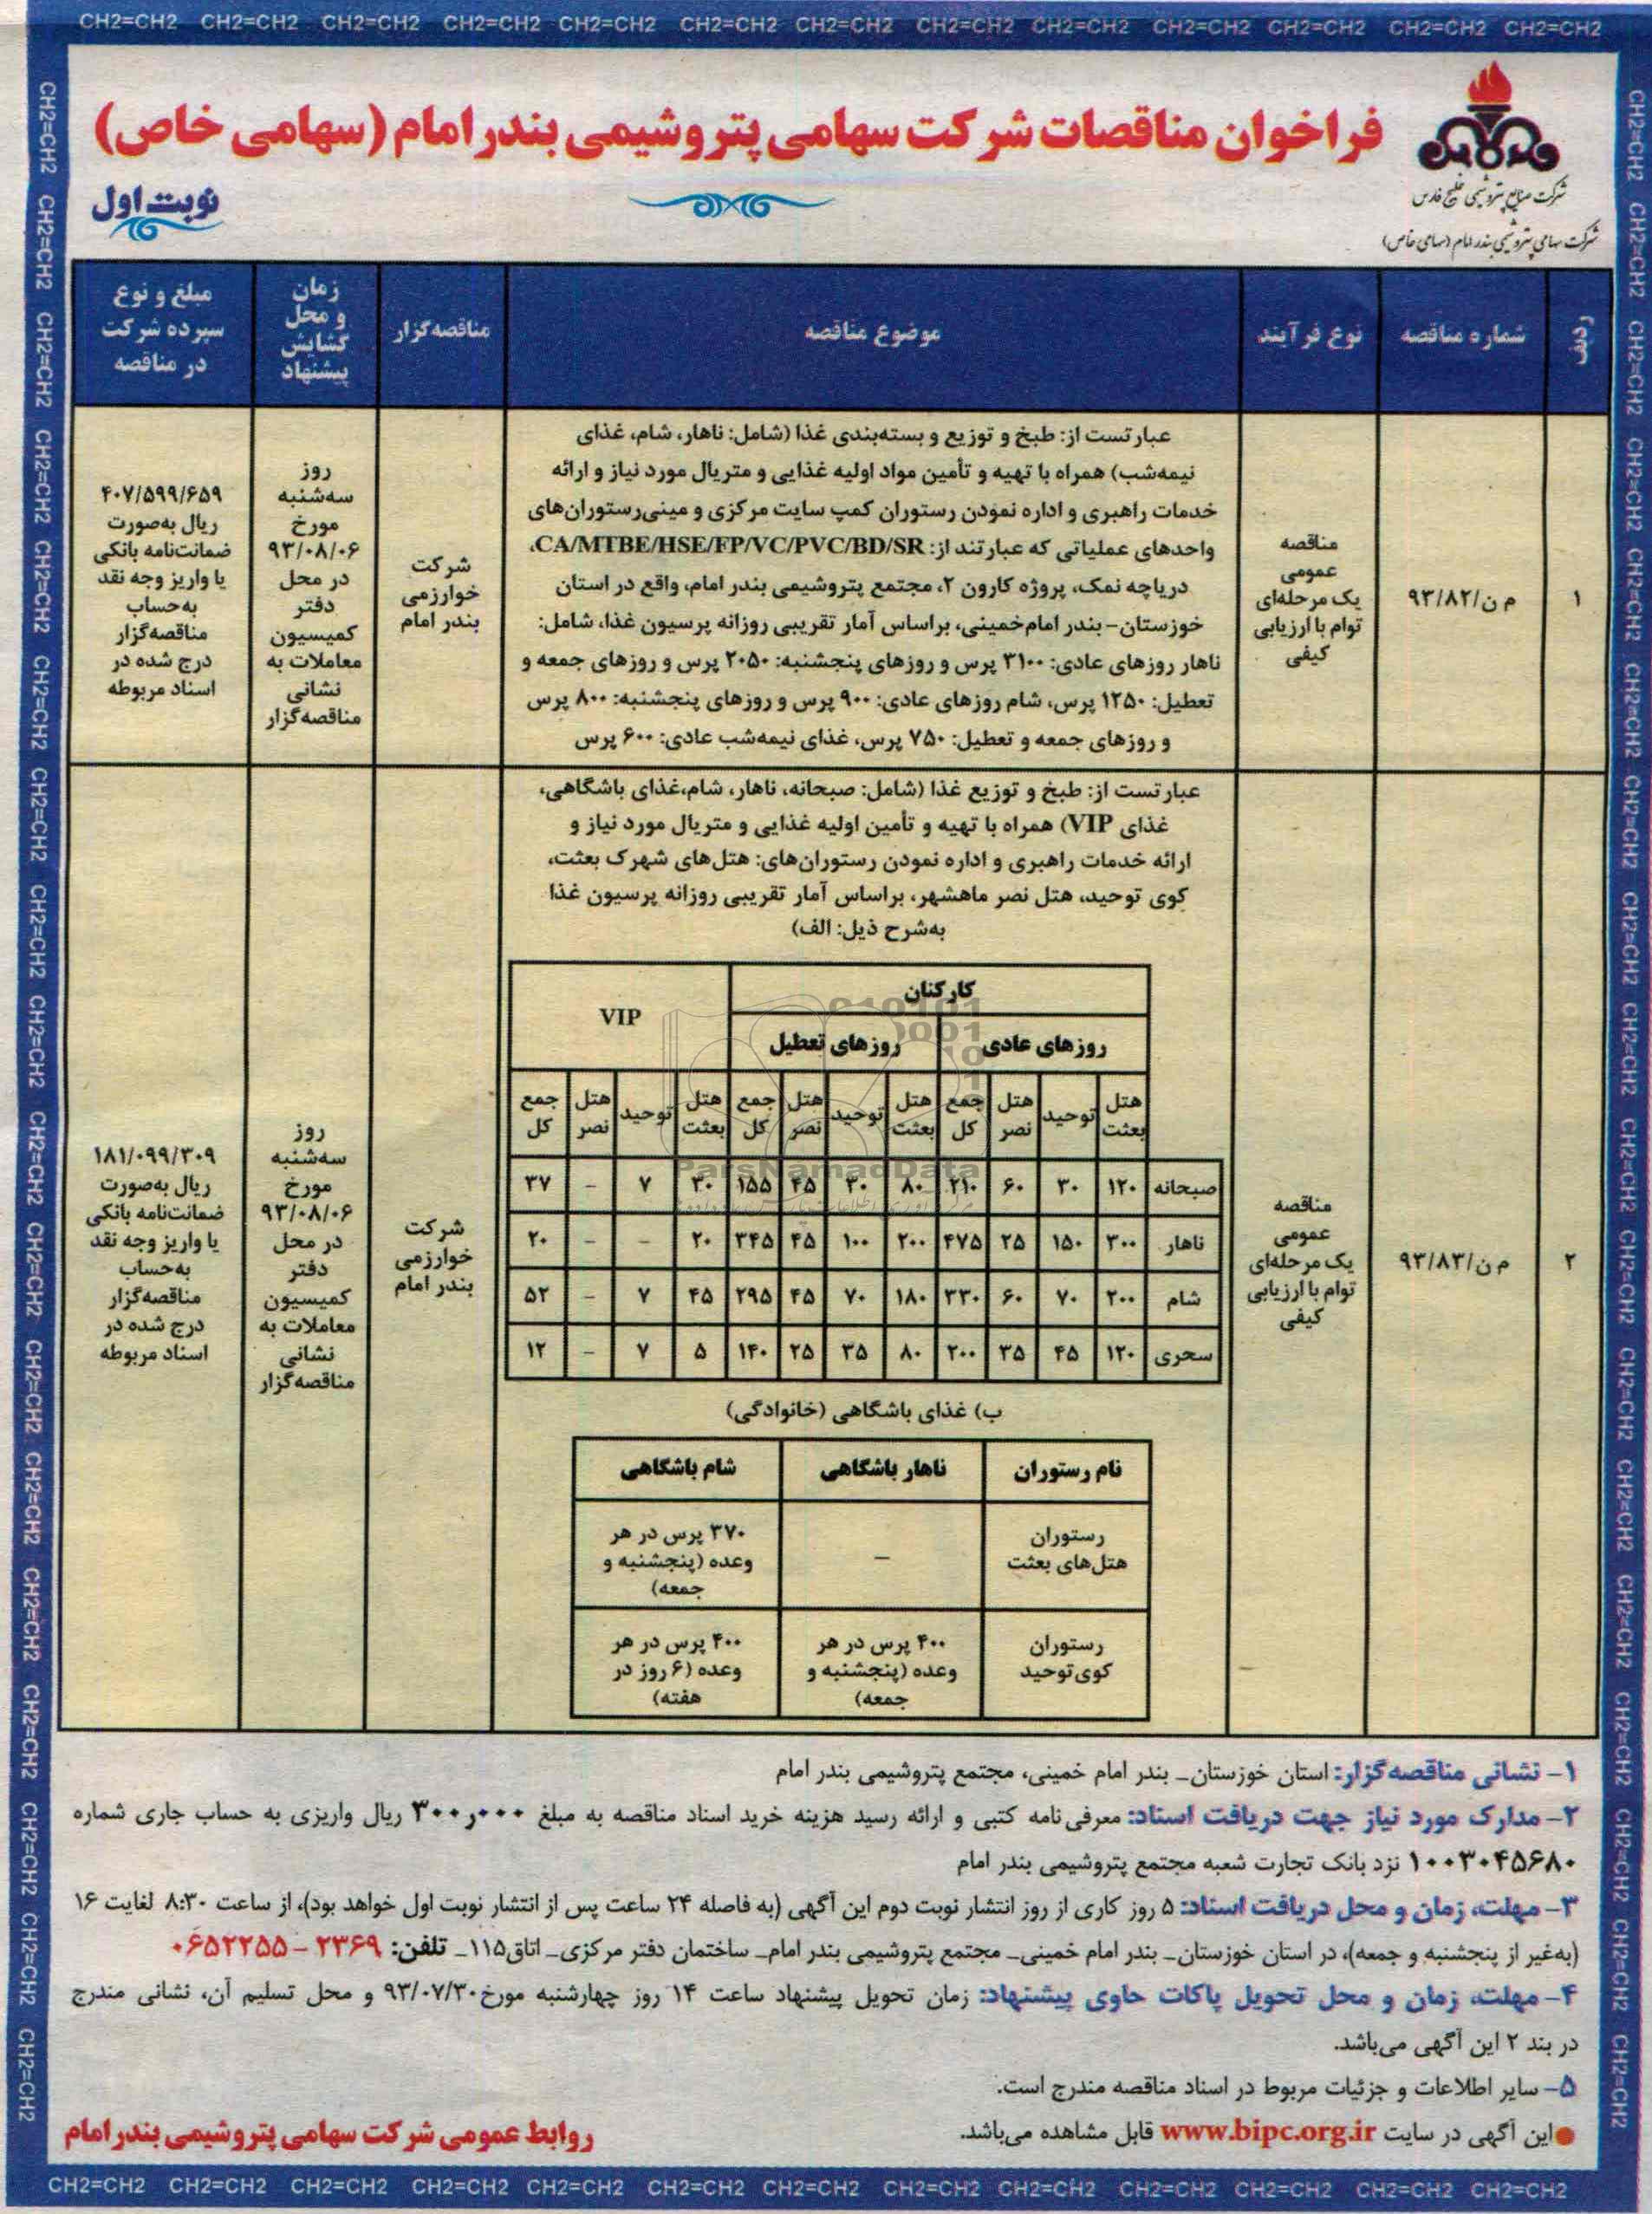 CH2=CH2 CH2=CH2 CH2=CH2 CH2=CH2 CH2=CH2 CH2=CH2 CH2=CH2 CH2=CH2 CH2=CH2 CH2=CH2 CH2=CH2 CH2=CH2 CH2=CH2
فراخوان مناقصات شرکت سهامی پتروشیمی بندر امام (سهامی خاص)
شرکت صنایع پتروشیمی خلیج فارس
شرکت سهامی پتروشیمی بندر امام (سهامی خاص)
نوبت اول
ردیف
شماره مناقصه
نوع فرآیند
موضوع مناقصه
مناقصه‌گزار
زمان
و محل
گشایش
پیشنهاد
مبلغ و نوع
سپرده شرکت
در مناقصه
۱
م ن/۹۳/۸۲
مناقصه
عمومی
یک مرحله‌ای
توام با ارزیابی
کیفی
عبارتست از: طبخ و توزیع و بسته‌بندی غذا (شامل: ناهار، شام، غذای
نیمه‌شب) همراه با تهیه و تأمین مواد اولیه غذایی و متریال مورد نیاز و ارائه
خدمات راهبری و اداره نمودن رستوران کمپ سایت مرکزی و مینی‌رستوران‌های
واحدهای عملیاتی که عبارتند از: CA/MTBE/HSE/FP/VC/PVC/BD/SR،
دریاچه نمک، پروژه کارون ۲، مجتمع پتروشیمی بندر امام، واقع در استان
خوزستان- بندر امام‌خمینی، براساس آمار تقریبی روزانه پرسیون غذا، شامل:
ناهار روزهای عادی: ۳۱۰۰ پرس و روزهای پنجشنبه: ۲۰۵۰ پرس و روزهای جمعه و
تعطیل: ۱۲۵۰ پرس، شام روزهای عادی: ۹۰۰ پرس و روزهای پنجشنبه: ۸۰۰ پرس
و روزهای جمعه و تعطیل: ۷۵۰ پرس، غذای نیمه‌شب عادی: ۶۰۰ پرس
شرکت
خوارزمی
بندر امام
روز
سه‌شنبه
مورخ
۹۳/۰۸/۰۶
در محل
دفتر
کمیسیون
معاملات به
نشانی
مناقصه‌گزار
۴۰۷/۵۹۹/۶۵۹
ریال به‌صورت
ضمانت‌نامه بانکی
یا واریز وجه نقد
به‌حساب
مناقصه‌گزار
درج شده در
اسناد مربوطه
۲
م ن/۹۳/۸۳
مناقصه
عمومی
یک مرحله‌ای
توام با ارزیابی
کیفی
عبارتست از: طبخ و توزیع غذا (شامل: صبحانه، ناهار، شام،غذای باشگاهی،
غذای VIP) همراه با تهیه و تأمین اولیه غذایی و متریال مورد نیاز و
ارائه خدمات راهبری و اداره نمودن رستوران‌های: هتل‌های شهرک بعثت،
کوی توحید، هتل نصر ماهشهر، براساس آمار تقریبی روزانه پرسیون غذا
به‌شرح ذیل: الف)
کارکنان VIP
روزهای عادی روزهای تعطیل
هتل بعثت توحید هتل نصر جمع کل هتل بعثت توحید هتل نصر جمع کل هتل بعثت توحید هتل نصر جمع کل
صبحانه ۱۲۰ ۳۰ ۶۰ ۲۱۰ ۸۰ ۳۰ ۴۵ ۱۵۵ ۳۰ ۷ - ۳۷
ناهار ۳۰۰ ۱۵۰ ۲۵ ۴۷۵ ۲۰۰ ۱۰۰ ۴۵ ۳۴۵ ۲۰ - - ۲۰
شام ۲۰۰ ۷۰ ۶۰ ۳۳۰ ۱۸۰ ۷۰ ۴۵ ۲۹۵ ۴۵ ۷ - ۵۲
سحری ۱۲۰ ۴۵ ۳۵ ۲۰۰ ۸۰ ۳۵ ۲۵ ۱۴۰ ۵ ۷ - ۱۲
ParsNamadData
ب) غذای باشگاهی (خانوادگی)
نام رستوران ناهار باشگاهی شام باشگاهی
رستوران
هتل‌های بعثت
-
۳۷۰ پرس در هر
وعده (پنجشنبه و
جمعه)
رستوران
کوی‌توحید
۴۰۰ پرس در هر
وعده (پنجشنبه و
جمعه)
۴۰۰ پرس در هر
وعده (۶ روز در
هفته)
شرکت
خوارزمی
بندر امام
روز
سه‌شنبه
مورخ
۹۳/۰۸/۰۶
در محل
دفتر
کمیسیون
معاملات به
نشانی
مناقصه‌گزار
۱۸۱/۰۹۹/۳۰۹
ریال به‌صورت
ضمانت‌نامه بانکی
یا واریز وجه نقد
به‌حساب
مناقصه‌گزار
درج شده در
اسناد مربوطه
۱- نشانی مناقصه‌گزار: استان خوزستان- بندر امام خمینی، مجتمع پتروشیمی بندر امام
۲- مدارک مورد نیاز جهت دریافت اسناد: معرفی‌نامه کتبی و ارائه رسید هزینه خرید اسناد مناقصه به مبلغ ۳۰۰ر۰۰۰ ریال واریزی به حساب جاری شماره
۱۰۰۳۰۴۵۶۸۰ نزد بانک تجارت شعبه مجتمع پتروشیمی بندر امام
۳- مهلت، زمان و محل دریافت اسناد: ۵ روز کاری از روز انتشار نوبت دوم این آگهی (به فاصله ۲۴ ساعت پس از انتشار نوبت اول خواهد بود)، از ساعت ۸:۳۰ لغایت ۱۶
(به‌غیر از پنجشنبه و جمعه)، در استان خوزستان- بندر امام خمینی- مجتمع پتروشیمی بندر امام- ساختمان دفتر مرکزی- اتاق۱۱۵- تلفن: ۲۳۶۹ - ۰۶۵۲۲۵۵
۴- مهلت، زمان و محل تحویل پاکات حاوی پیشنهاد: زمان تحویل پیشنهاد ساعت ۱۴ روز چهارشنبه مورخ۹۳/۰۷/۳۰ و محل تسلیم آن، نشانی مندرج
در بند ۲ این آگهی می‌باشد.
۵- سایر اطلاعات و جزئیات مربوط در اسناد مناقصه مندرج است.
●این آگهی در سایت www.bipc.org.ir قابل مشاهده می‌باشد.
روابط عمومی شرکت سهامی پتروشیمی بندر امام
CH2=CH2 CH2=CH2 CH2=CH2 CH2=CH2 CH2=CH2 CH2=CH2 CH2=CH2 CH2=CH2 CH2=CH2 CH2=CH2 CH2=CH2 CH2=CH2 CH2=CH2